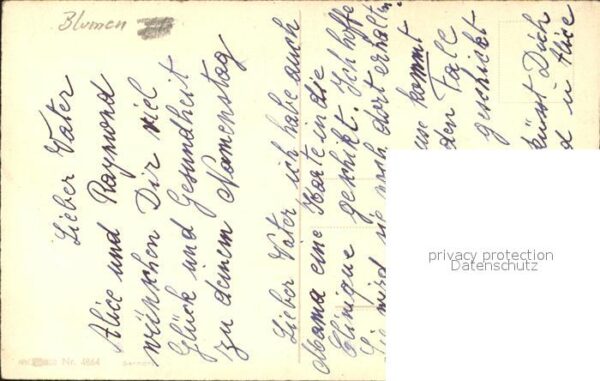 Blumen
Lieber Vater
Alice und Raymond
wünschen Dir viel
Glück und Gesundheit
zu deinem Namenstag
Lieber Vater, ich habe auch
Mama eine Karte in die
Clinique geschikt. Ich hoffe
Sie wird sie noch dort erhalten
kommt
den Fall
geschickt
Dich
d u Alice
privacy protection
Datenschutz
Nr. 4864